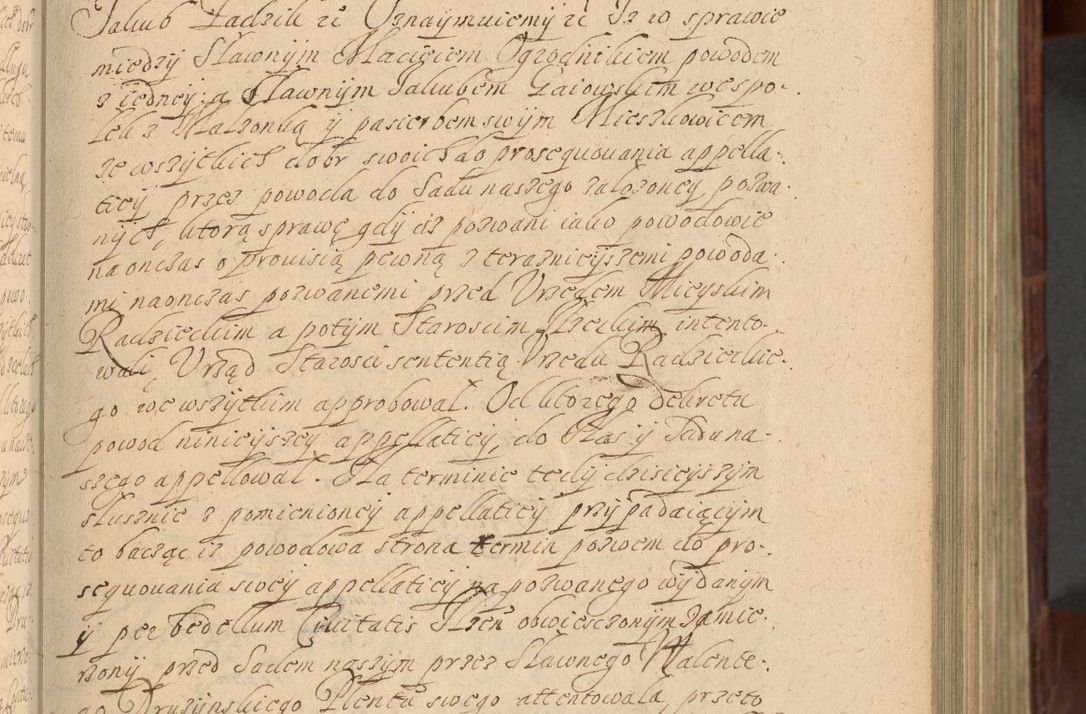 Jakub Zadzik etc Oznaymuiemy iż w sprawie
między Sławnym Macięiem Ogrodnikiem powodem
z iedney, a Sławnym Jakubem Gaiowskim wespo-
łek z Małżonką y pasierbem swym Mieszkowicem
ze wszytkich dobr swoich do prosequowania appella-
ticy przez powoda do Sadu naszego założoney pozwa-
nych, ktorą sprawę gdy ciż pozwani iako powodowie
na onczas o prouisią pewną z teraznieyszemi powoda-
mi naonczas pozwanemi przed Vrzędem Mieyskim
Radzieckim a potym Staroscim Ilzeckim intento-
wali, Vrząd Starosci sententią Vrzedu Radzieckie-
go we wszytkim approbował. Od ktorego dekretu
powod ninieyszey appellaticy, do Nas y Sadu na-
szego appellował. Na terminie tedy dzisieyszym
słusznie z pomienioney appellaticy przypadaiącym
to bacząc iż powodowa strona termin pozwem do pro-
sequowania swoiey appellaticy na pozwanego wydanym
y per bedellum Ciuitatis Ilzen obwiesczonym zamie-
rzony przed Sadem naszym przez Sławnego Walente-
go Druzynskiego Plenta swego attentowała, przeto